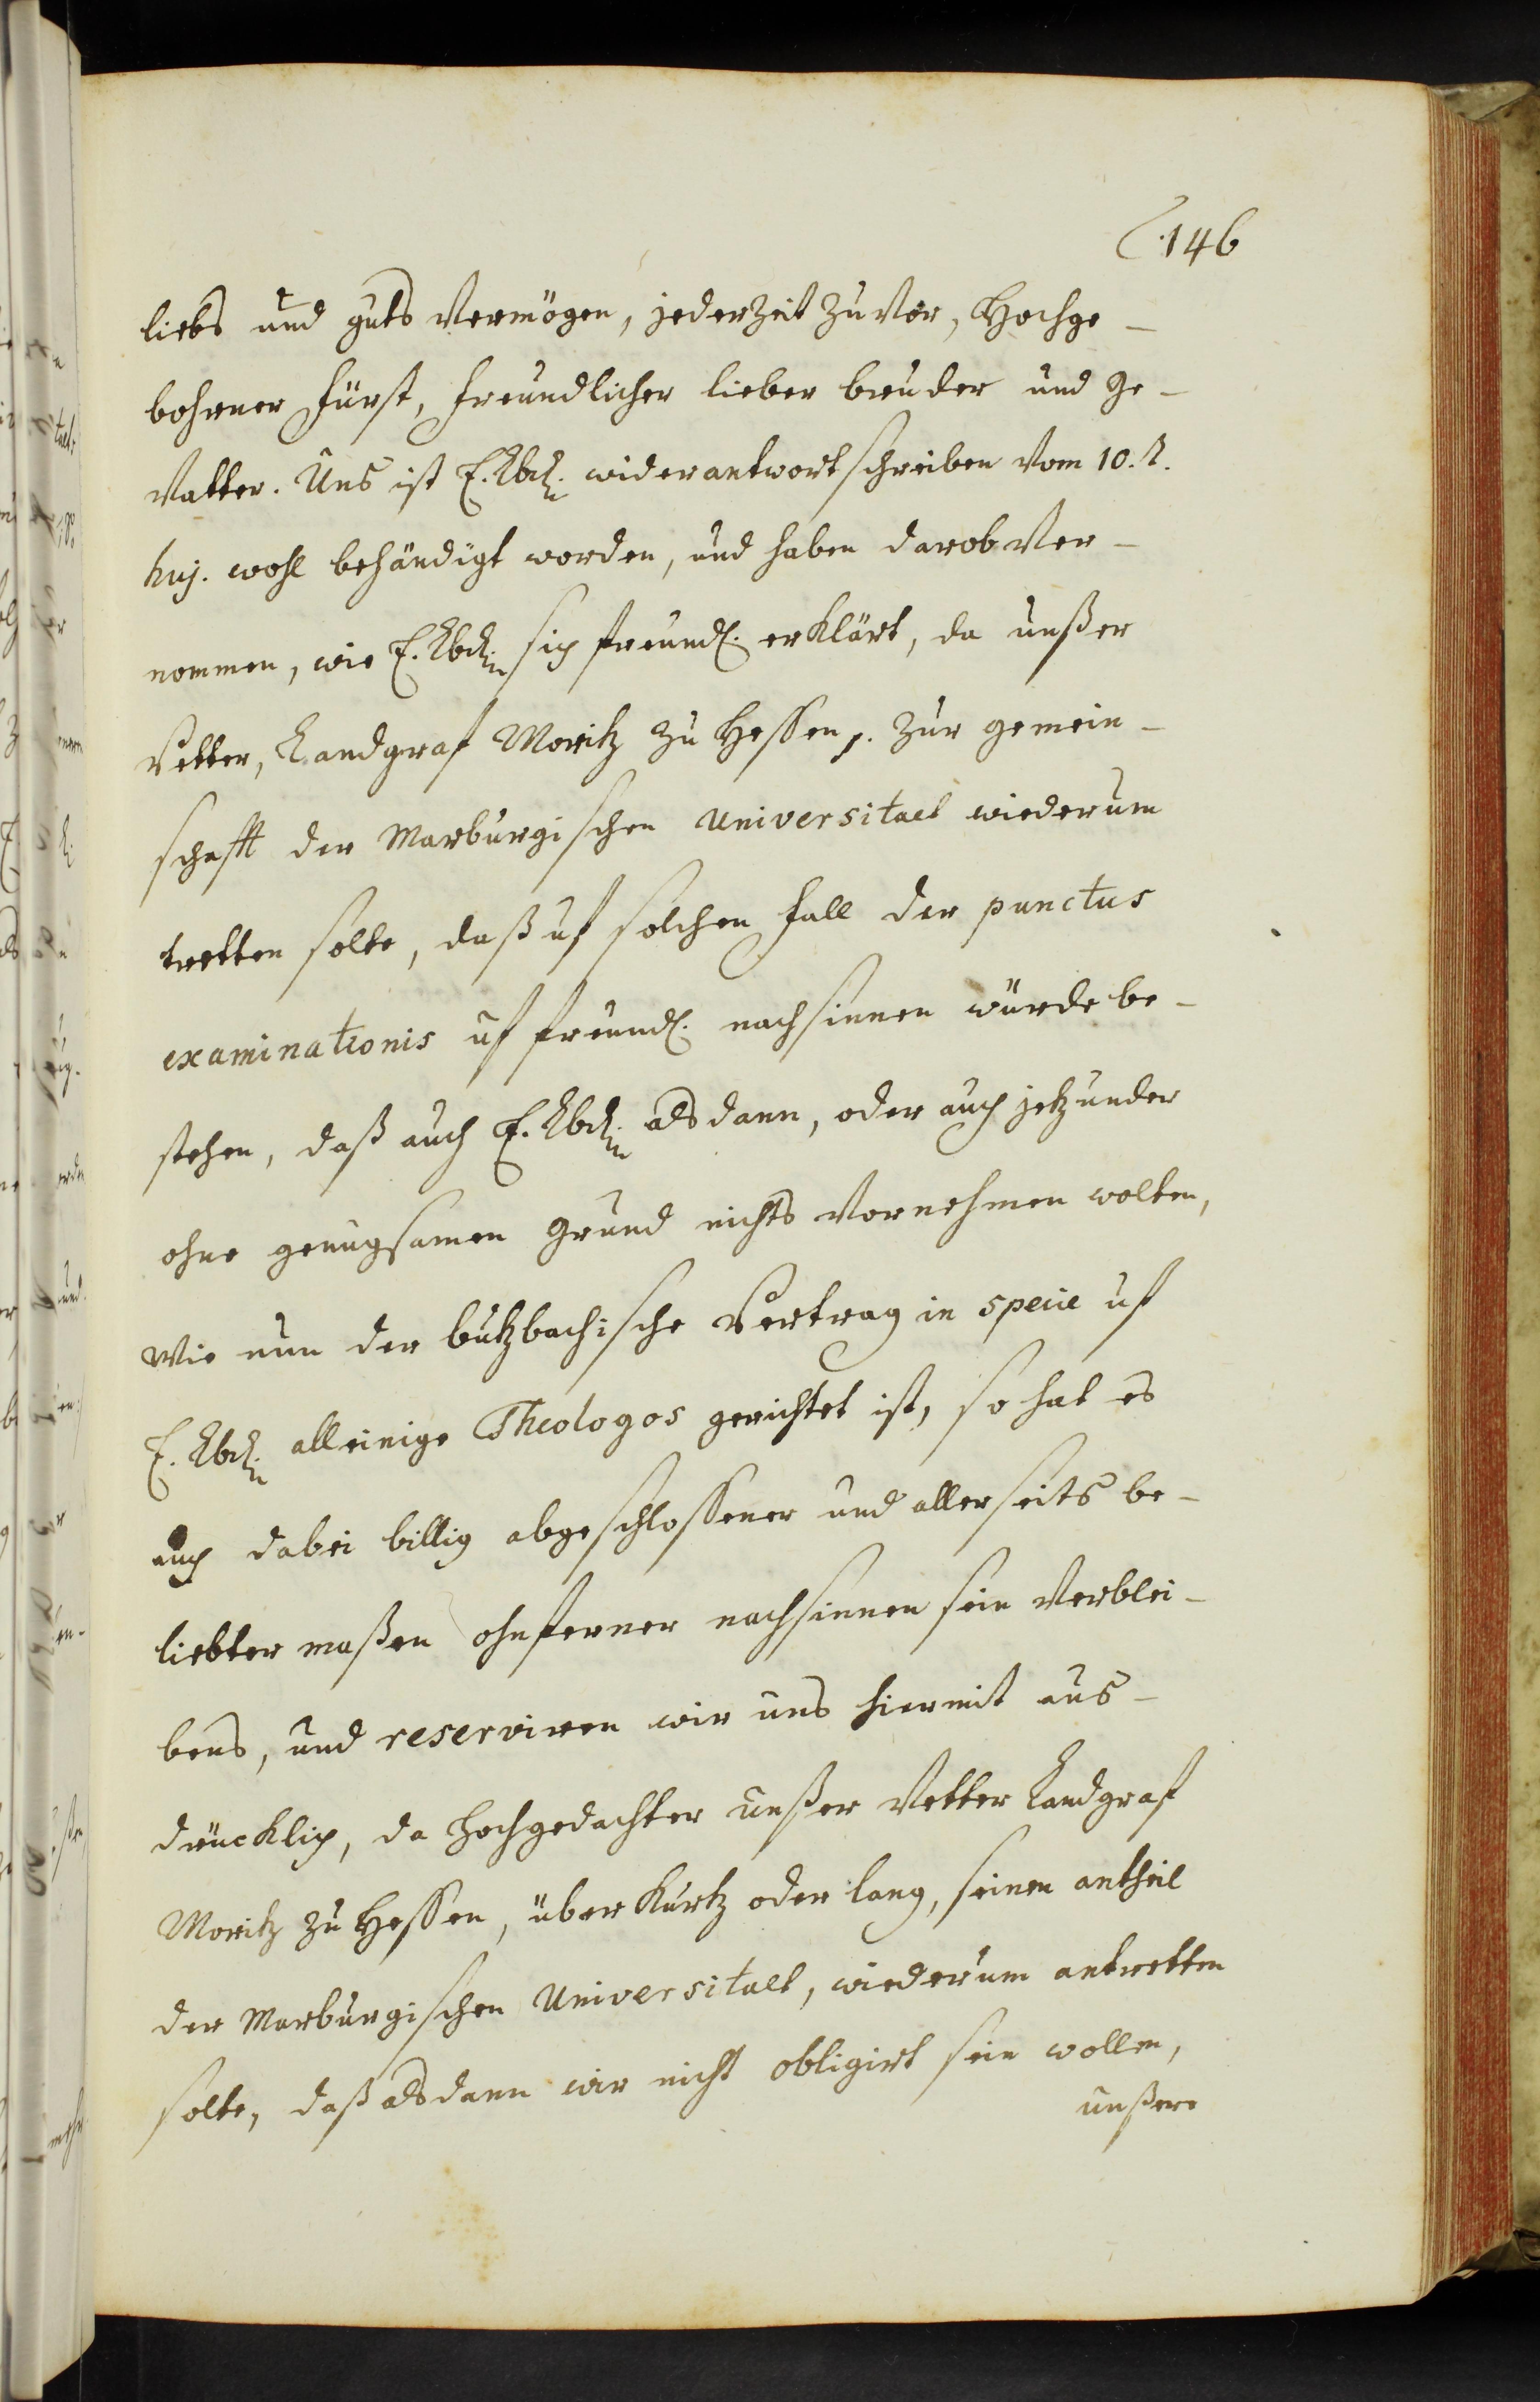 146
liebs und guts vermögen, jederzeit zuvor, Hochge-
bohrner Fürst, freundlicher lieber bruder und ge-
vatter. Uns ist E. Lbd. widerantwortschreiben vom 10.
huj. wohl behändigt worden, und haben darob ver-
nommen, wie E. Lbd. sich freundl. erklärt, da unßer
Vetter, Landgraf Moritz zu Hessen p. zur gemein-
schafft der Marburgischen Universitaet wiederum
tretten solte, daß uf solchen fall der punctus
examinationis uf freundl. nachsinnen würde be-
stehen, daß auch E. Lbd. alsdann, oder auch jetzunder
ohne genugsamen grund nichts vornehmen wolten,
Wie nun der butzbachische Vertrag in specie uf
E. Lbd. alleinige Theologos gerichtet ist, so hat es
auch dabei billig abgeschlossener und allerseits be-
liebter maßen ohnferner nachsinnen sein verblei-
bens, und reserviren wir uns hiermit aus-
drücklich, da hochgedachter unßer Vetter Landgraf
Moritz zu Hessen, über kurtz oder lang, seinen antheil
der Marburgischen Universitaet, wiederum antretten
solte, daß alsdann wir nicht obligirt sein wollen,
unßere